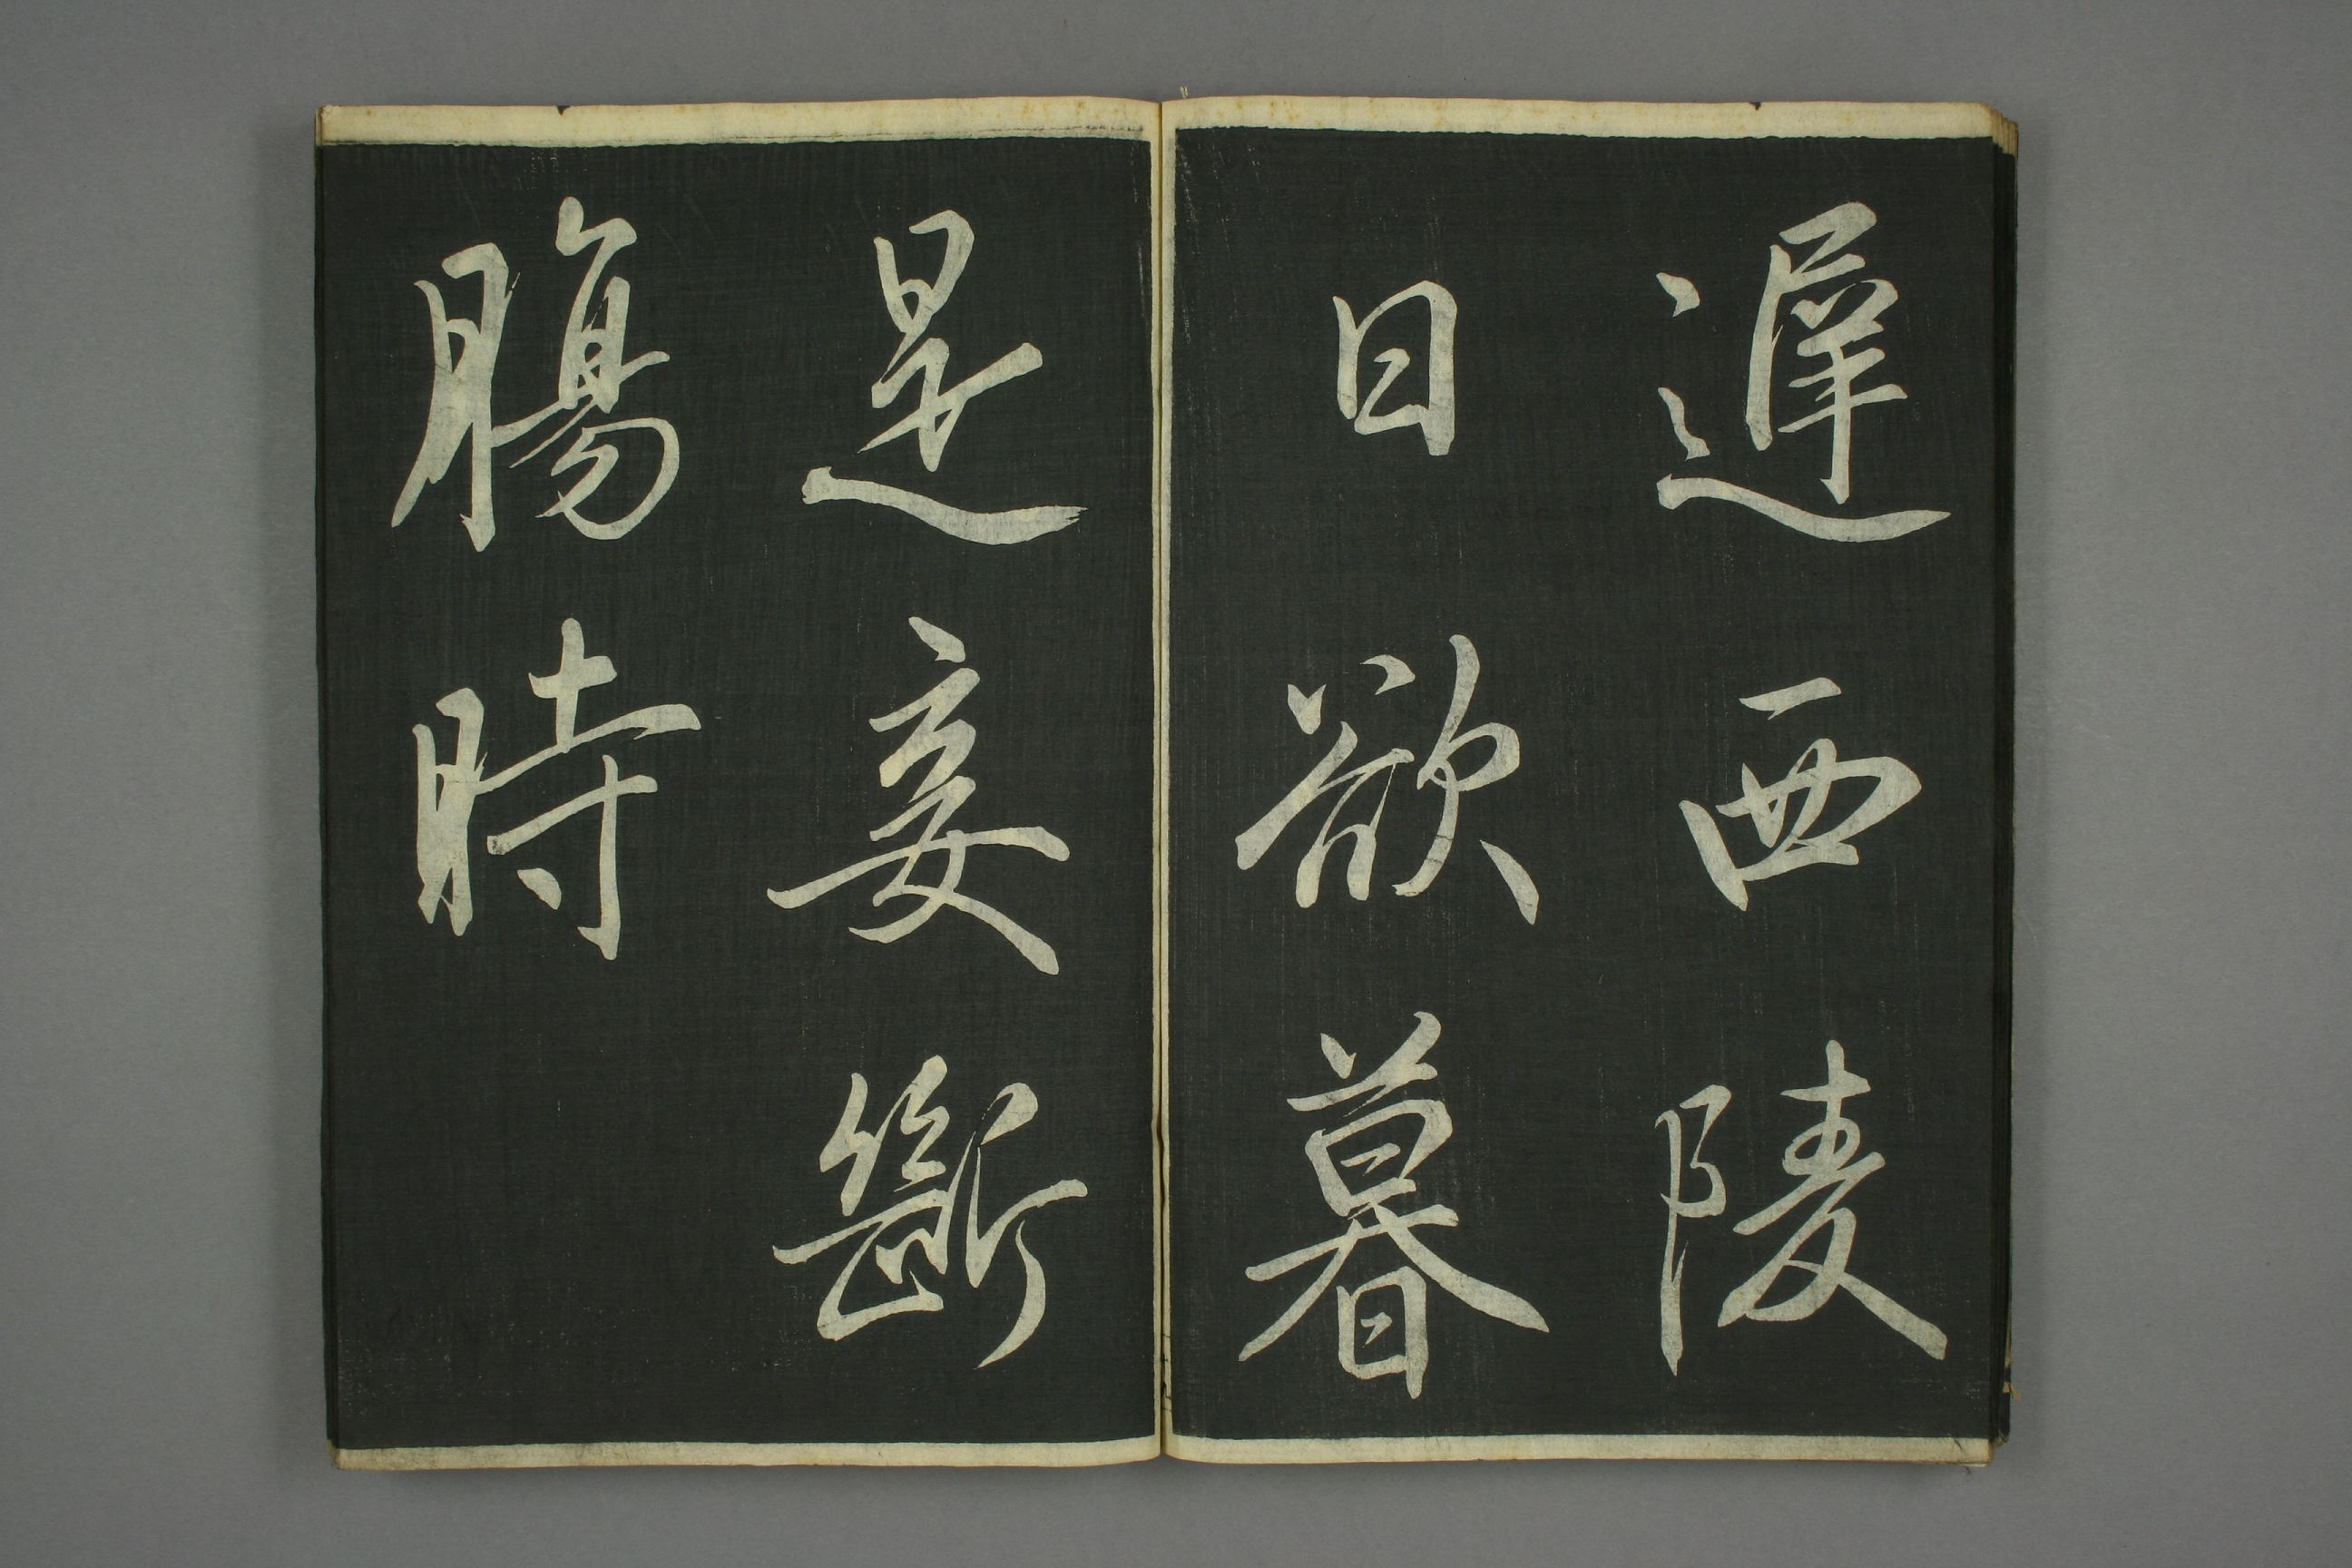 遲西陵
日欲暮
是妾斷
膓時